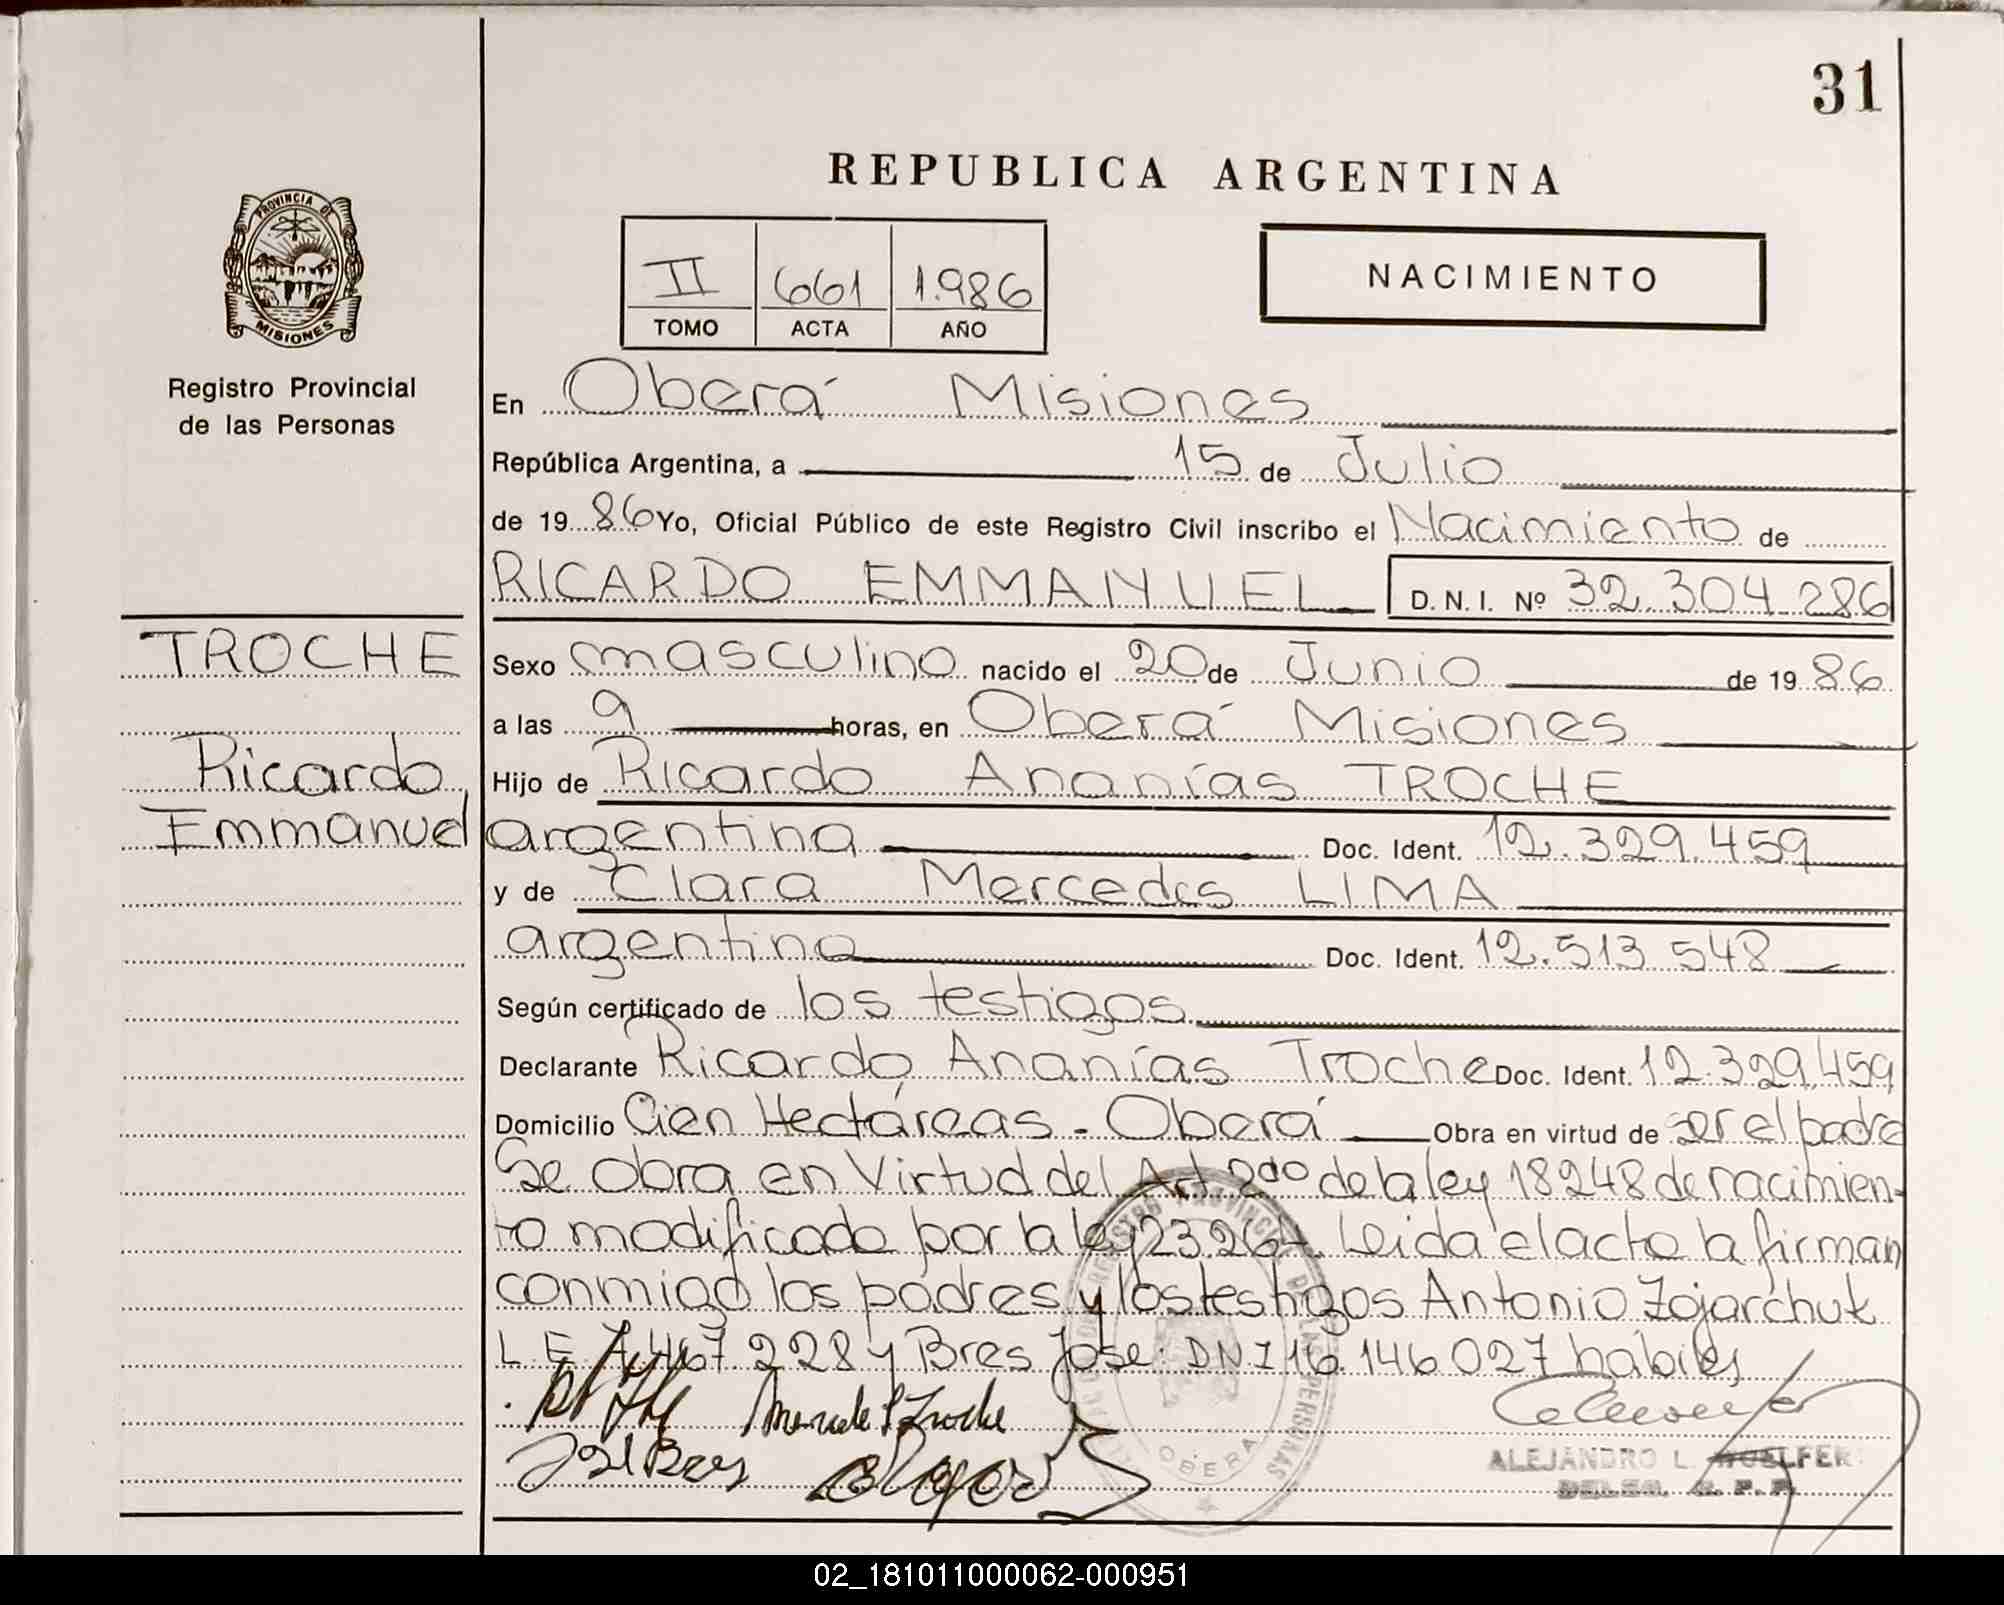 31
REPUBLICA ARGENTINA
PROVINCIA DE
MISIONES
Registro Provincial
de las Personas
II 661 1.986
TOMO ACTA AÑO
NACIMIENTO
En Oberá Misiones
República Argentina, a 15 de Julio
de 1986 Yo, Oficial Público de este Registro Civil inscribo el Nacimiento de
RICARDO EMMANUEL D.N.I. Nº 32.304.286
TROCHE
Ricardo
Emmanuel
Sexo masculino nacido el 20 de Junio de 1986
a las 9 horas, en Oberá Misiones
Hijo de Ricardo Ananías TROCHE
argentina Doc. Ident. 12.329.459
y de Clara Mercedes LIMA
argentina Doc. Ident. 12.513.548
Según certificado de los testigos
Declarante Ricardo Ananías Troche Doc. Ident. 12.329.459
Domicilio Cien Hectáreas - Oberá Obra en virtud de ser el padre
Se obra en Virtud del Art 2do de la ley 18248 de nacimien-
to modificado por la ley 23.264. Leida el acta la firman
conmigo los padres y los testigos Antonio Zojarchuk
L E 7.467 228 y Bres José DNI 16.146.027 habiles
OBERA
ALEJANDRO L.
02_181011000062-000951